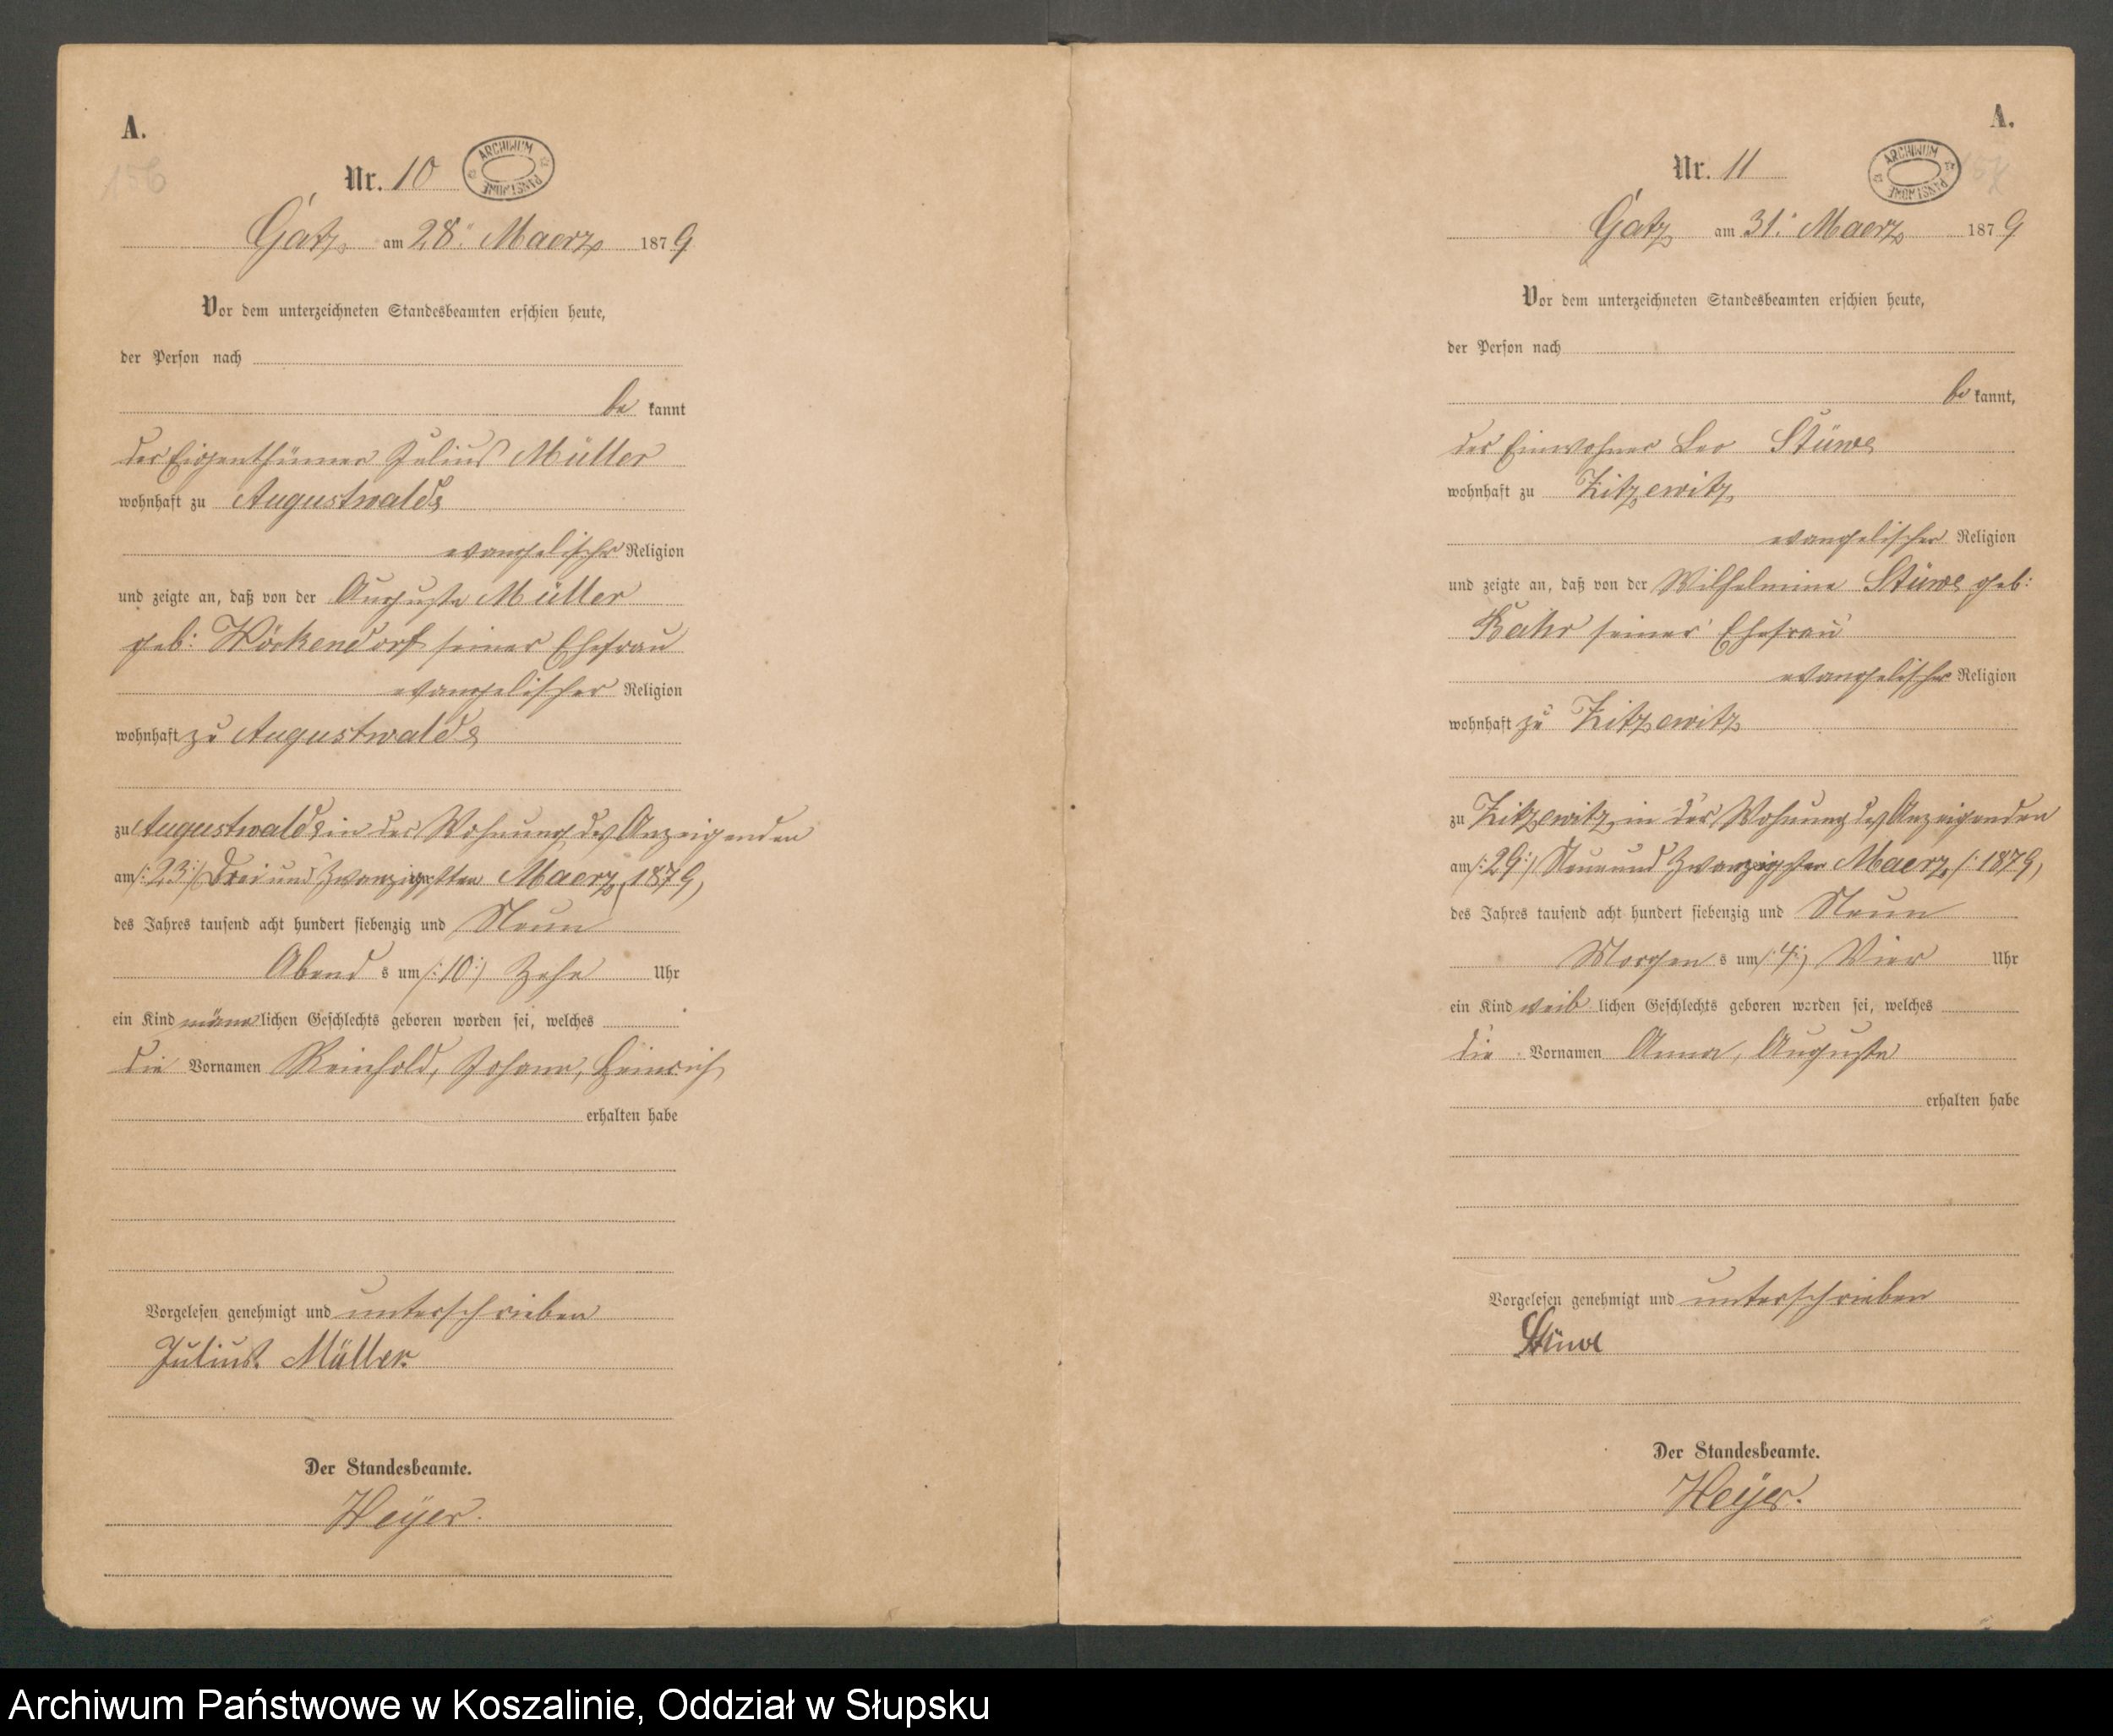 A.
156
Nr. 10
ARCHIWUM PAŃSTWOWE
Gatz am 28. Maerz 1879
Vor dem unterzeichneten Standesbeamten erschien heute,
der Person nach
be kannt
der Eigenthümer Julius Müller
wohnhaft zu Augustwalde
evangelischer Religion
und zeigte an, daß von der Auguste Müller
geb: Wöckendorf seiner Ehefrau
evangelischer Religion
wohnhaft zu Augustwalde
zu Augustwalde in der Wohnung des Anzeigenden
am /:23:/ Drei und Zwanzigsten Maerz /1879,
des Jahres tausend acht hundert siebenzig und Neun
Abend s um /:10:/ Zehn Uhr
ein Kind männlichen Geschlechts geboren worden sei, welches
die Vornamen Reinhold, Johann, Heinrich
erhalten habe
Vorgelesen genehmigt und unterschrieben
Julius Müller.
Der Standesbeamte.
Heÿer.
A.
Nr. 11
ARCHIWUM PAŃSTWOWE
Gatz am 31. Maerz 1879
Vor dem unterzeichneten Standesbeamten erschien heute,
der Person nach
be kannt,
der Einwohner Leo Stüwe
wohnhaft zu Zitzewitz
evangelischer Religion
und zeigte an, daß von der Wilhelmine Stüwe geb:
seiner Ehefrau
evangelischer Religion
wohnhaft zu Zitzewitz
zu Zitzewitz in der Wohnung des Anzeigenden
am /:29:/ Neun und Zwanzigsten Maerz /:1879,
des Jahres tausend acht hundert siebenzig und Neun
Morgen s um /:4:/ Vier Uhr
ein Kind weib lichen Geschlechts geboren worden sei, welches
die Vornamen Anna, Auguste
erhalten habe
Vorgelesen genehmigt und unterschrieben
Stüwe
Der Standesbeamte.
Heÿer.
Archiwum Państwowe w Koszalinie, Oddział w Słupsku